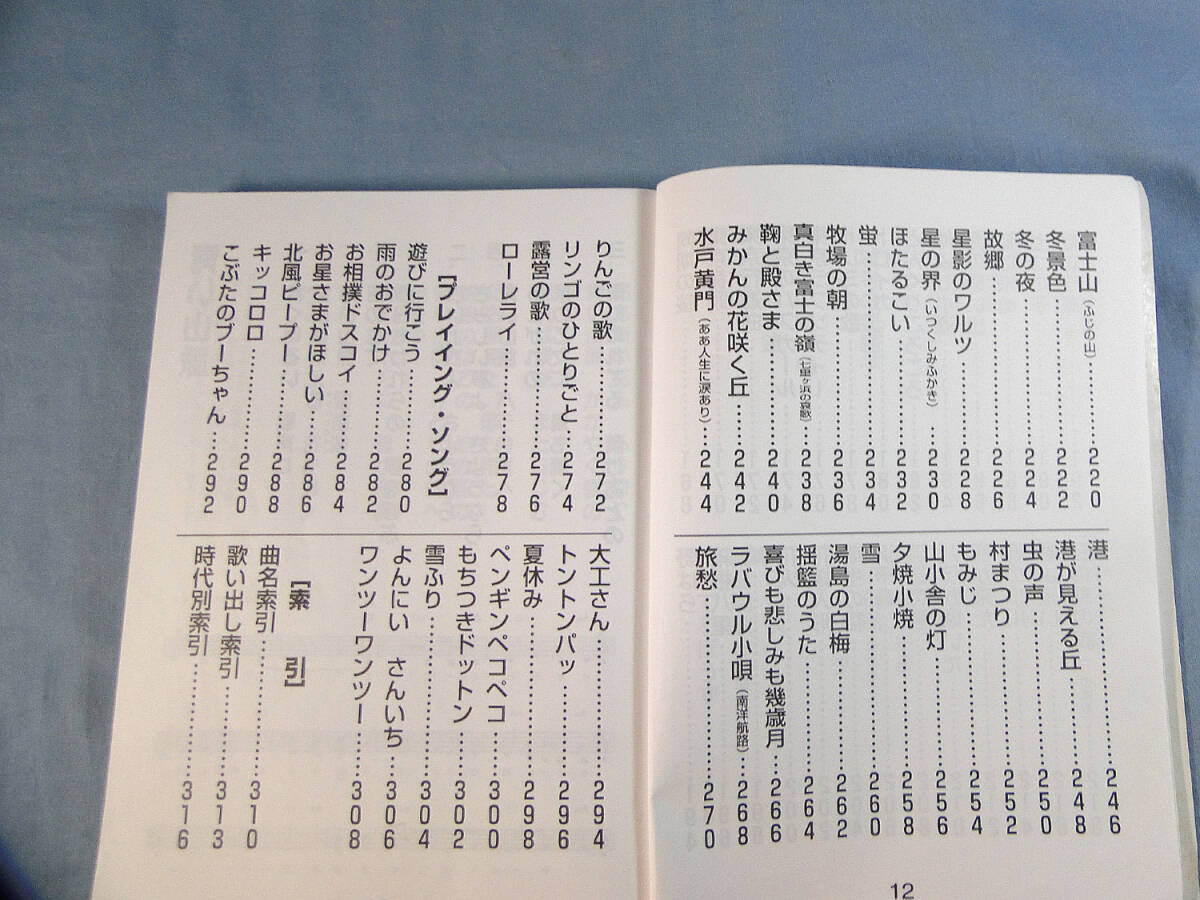 富士山（ふじの山）…220
冬景色…222
冬の夜…224
故郷…226
星影のワルツ…228
星の界（いつくしみふかき）…230
ほたるこい…232
蛍…234
牧場の朝…236
真白き富士の嶺（七里ヶ浜の哀歌）…238
鞠と殿さま…240
みかんの花咲く丘…242
水戸黄門（ああ人生に涙あり）…244
港…246
港が見える丘…248
虫の声…250
村まつり…252
もみじ…254
山小舎の灯…256
夕焼小焼…258
雪…260
湯島の白梅…262
揺籃のうた…264
喜びも悲しみも幾歳月…266
ラバウル小唄（南洋航路）…268
旅愁…270
12
りんごの歌…272
リンゴのひとりごと…274
露営の歌…276
ローレライ…278
［プレイイング・ソング］
遊びに行こう…280
雨のおでかけ…282
お相撲ドスコイ…284
お星さまがほしい…286
北風ピープー…288
キッコロロ…290
こぶたのブーちゃん…292
大工さん…294
トントンパッ…296
夏休み…298
ペンギンペコペコ…300
もちつきドットン…302
雪ふり…304
よんにい　さんいち…306
ワンツーワンツー…308
［索　引］
曲名索引…310
歌い出し索引…313
時代別索引…316